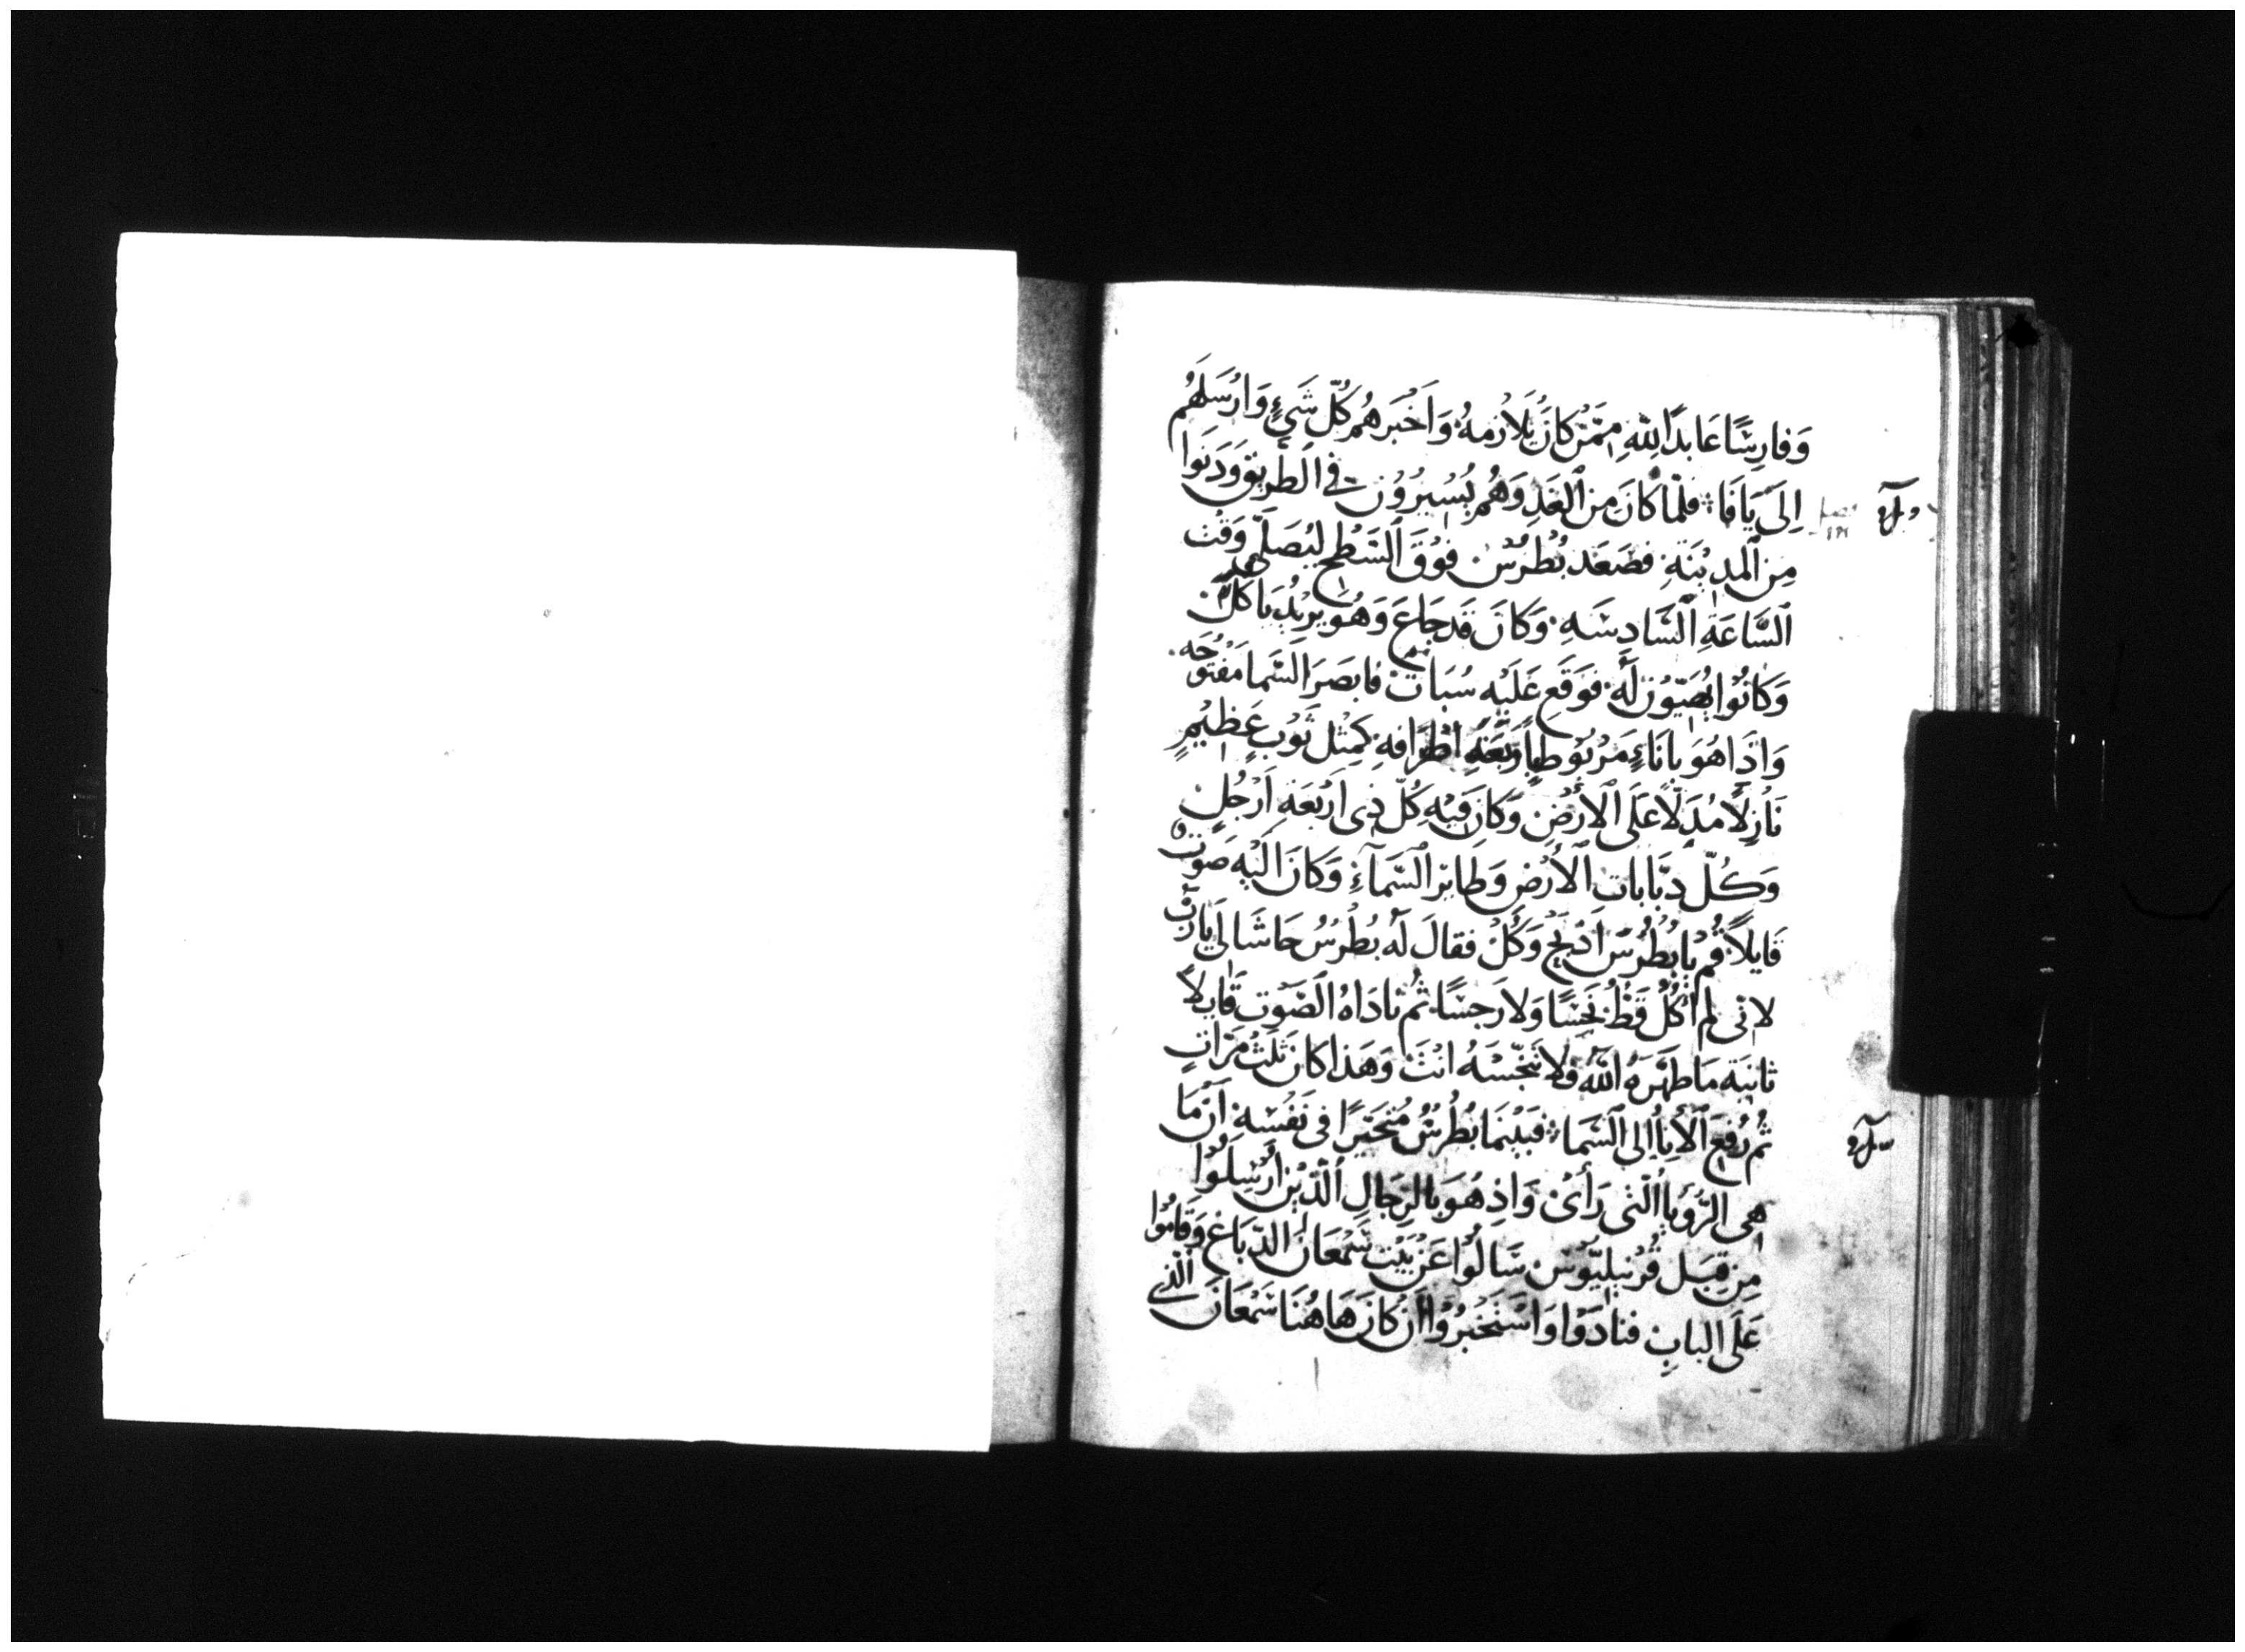 وَفارِسًا عَابدًا لِلّٰهِ مِمَّنْ كانَ يُلَازمهُ وَاَخْبَرهُم كُلّ شَيءٍ وَارْسَلَهُم
اِلَى يَافَا فلمّا كانَ مِن ٱلغَدِ وَهُم يُسِيرُوْن في الطّرِيق وَدَنَوا
مِن ٱلمدِيْنَةِ فصَعَد بُطرُس فَوْقَ ٱلسَّطْح ليُصَلّى وَقْت
ٱلسَّاعَةِ ٱلسَّادِسَه وَكانَ قَد جَاعَ وَهُو يرِيْدُ يَاكُل
وَكانُوا يُهَيّوُن لَهُ فَوَقَع عَلَيْهِ سُبَات فابصَرَ السَّما مَفْتُوحَه
وَاذَا هُوَ باناءٍ مَرْبُوْط باَرْبَعَةِ اطْرَافهِ كمِثْل ثَوْبٍ عَظِيْمٍ
نَازِلًا مُدَلّاً عَلَى ٱلارْضِ وَكانَ فِيْهِ كُلّ ذِى اَرْبَعَةِ اَرْجُلٍ
وَكُلّ دبَّابات ٱلارْض وَطَاير السَّمآءِ وَكانَ الَيْه صَوْتٌ
قَايلاً قُم يا بُطرُس اَذْبَحْ وَكُلْ فقالَ لَه بُطْرُسُ حَاشَا لي يارَبّ
لانى لم اٰكُلْ قَطُّ نَجِسًا وَلا رَجسًا ثُم نادَاهُ ٱلصَّوْت قَايلاً
ثانيَة مَا طَهَّرَهُ اللّٰهُ فلا تنجّسَهُ انْتَ وَهَذا كانَ ثلثَ مَرّاتٍ
ثُم رُفِعَ ٱلاناُ الى ٱلسَّما فبَيْنَمَا بُطْرُسُ مُتحَيرًا فى نَفْسه اَنْ مَا
هِى الرُّؤيا ٱلّتى رَأىٰ وَاذ هُوَ بالرِجَالِ ٱلّذيْن اُرْسِلُوْا
مِن قِبَل قُرْنيليُّوْس سَالوُا عَنْ بَيْت سَمْعَانَ الدّبَاغ وَقامُوا
عَلَى البابِ فنادَوْا وَاسْتَخْبرُوْا اَنْ كانَ هَاهُنَا سَمْعَانَ الّذي